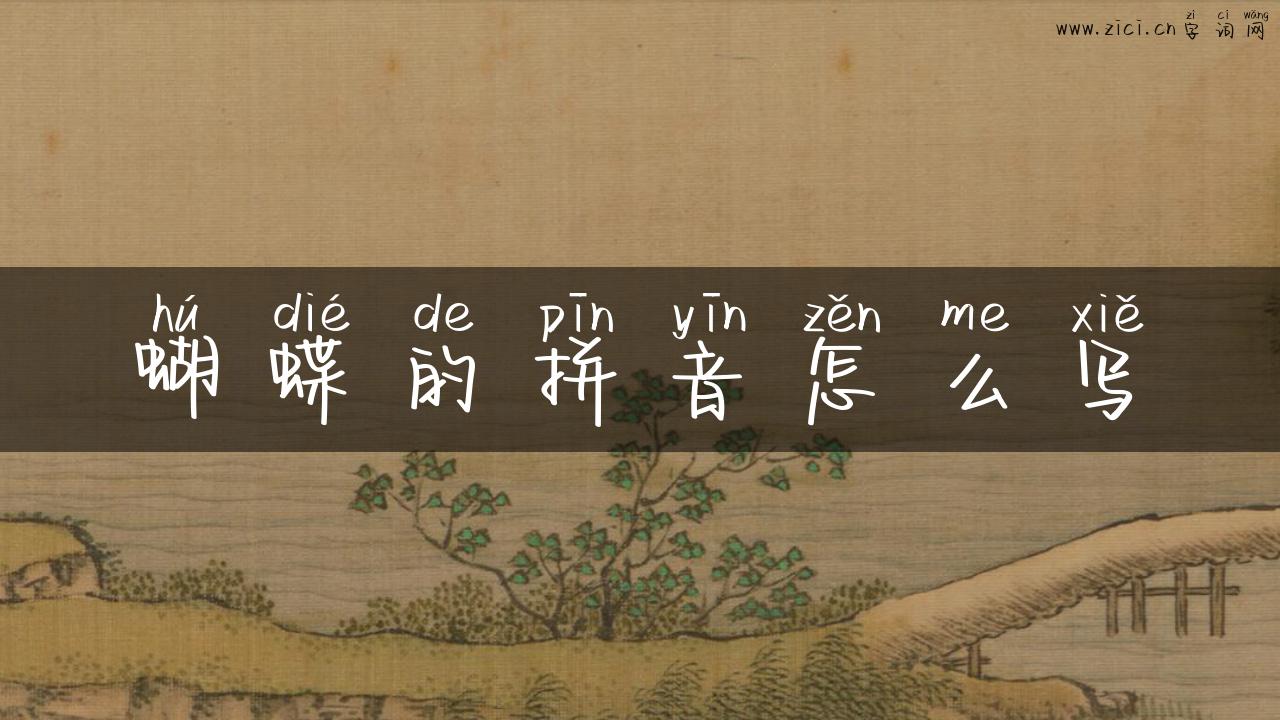 zì cí wǎng
www.zici.cn 字 词 网
hú dié de pīn yīn zěn me xiě
蝴 蝶 的 拼 音 怎 么 写